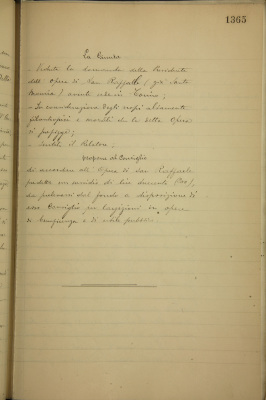 1365
La Camera
- Veduta la domanda della Presidente
dell'Opera di San Raffaele (già Santa
) avente sede in Torino;
- In considerazione degli scopi altamente
filantropici e morali che la detta Opera
si prefigge;
- Sentito il Relatore;
propone al Consiglio
di accordare all'Opera di San Raffaele
predetta un sussidio di lire
da prelevarsi dal fondo a disposizione di
esso Consiglio per elargizioni in opere
di beneficenza e di utilità pubblica.